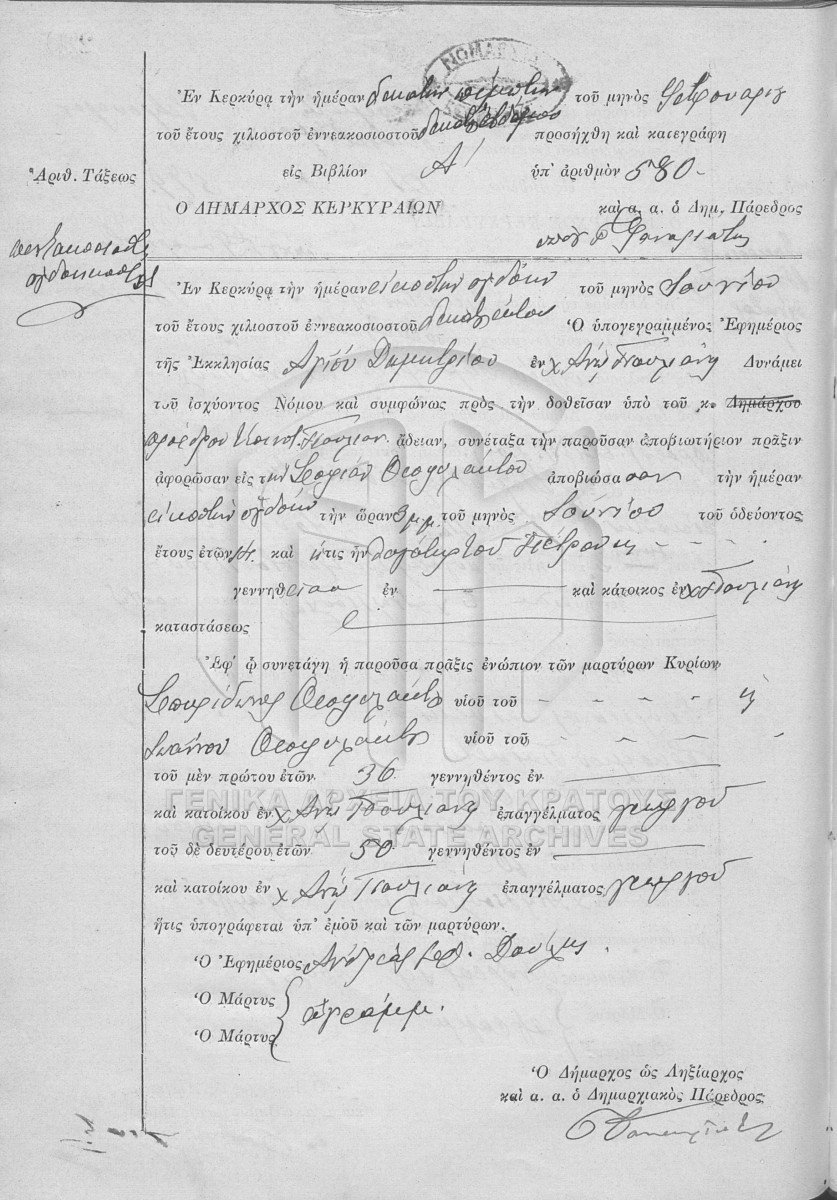 ΝΟΜΑΡΧΙΑ
Ἐν Κερκύρᾳ τὴν ἡμέραν δεκάτην πέμπτην τοῦ μηνὸς Φεβρουαρίου
τοῦ ἔτους χιλιοστοῦ ἐννεακοσιοστοῦ δεκάτου ἑβδόμου προσήχθη καὶ κατεγράφη
Ἀριθ. Τάξεως
εἰς Βιβλίον Α' ὑπ' ἀριθμὸν 580
Ο ΔΗΜΑΡΧΟΣ ΚΕΡΚΥΡΑΙΩΝ
καὶ α. α. ὁ Δημ. Πάρεδρος
πεντακοσιοστὴ
ὀγδοηκοστὴ
Ἐν Κερκύρᾳ τὴν ἡμέραν εἰκοστὴν ὀγδόην τοῦ μηνὸς Ἰουνίου
τοῦ ἔτους χιλιοστοῦ ἐννεακοσιοστοῦ δεκάτου ἕκτου Ὁ ὑπογεγραμμένος Ἐφημέριος
τῆς Ἐκκλησίας Ἁγίου Δημητρίου ἐν χ Ἄνω Παυλιάνῃ Δυνάμει
τοῦ ἰσχύοντος Νόμου καὶ συμφώνως πρὸς τὴν δοθεῖσαν ὑπὸ τοῦ κ. Δημάρχου
προέδρου Κοινότ. Παυλιαν. ἄδειαν, συνέταξα τὴν παροῦσαν ἀποβιωτήριον πρᾶξιν
ἀφορῶσαν εἰς τὴν Σοφίαν Θεοφυλάκτου ἀποβιώσασαν τὴν ἡμέραν
εἰκοστὴν ὀγδόην τὴν ὥραν 3 μ.μ. τοῦ μηνὸς Ἰουνίου τοῦ ὁδεύοντος
ἔτους ἐτῶν καὶ ἥτις ἦν θυγάτηρ τοῦ Πέτρου
γεννηθεῖσα ἐν καὶ κάτοικος ἐν χ Παυλιάνῃ
καταστάσεως
Ἐφ' ᾧ συνετάγη ἡ παροῦσα πρᾶξις ἐνώπιον τῶν μαρτύρων Κυρίων
Σπυρίδωνος Θεοφυλάκτου υἱοῦ τοῦ
Ἰωάννου Θεοφυλάκτου υἱοῦ τοῦ
τοῦ μὲν πρώτου ἐτῶν 36 γεννηθέντος ἐν
ΓΕΝΙΚΑ ΑΡΧΕΙΑ ΤΟΥ ΚΡΑΤΟΥΣ
καὶ κατοίκου ἐν χ Ἄνω Παυλιάνῃ ἐπαγγέλματος γεωργοῦ
GENERAL STATE ARCHIVES
τοῦ δὲ δευτέρου ἐτῶν 50 γεννηθέντος ἐν
καὶ κατοίκου ἐν χ Ἄνω Παυλιάνῃ ἐπαγγέλματος γεωργοῦ
ἥτις ὑπογράφεται ὑπ' ἐμοῦ καὶ τῶν μαρτύρων.
Ὁ Ἐφημέριος Ἀνδρέας
Ὁ Μάρτυς
ἀγράμμ.
Ὁ Μάρτυς
Ὁ Δήμαρχος ὡς Ληξίαρχος
καὶ α. α. ὁ Δημαρχιακὸς Πάρεδρος